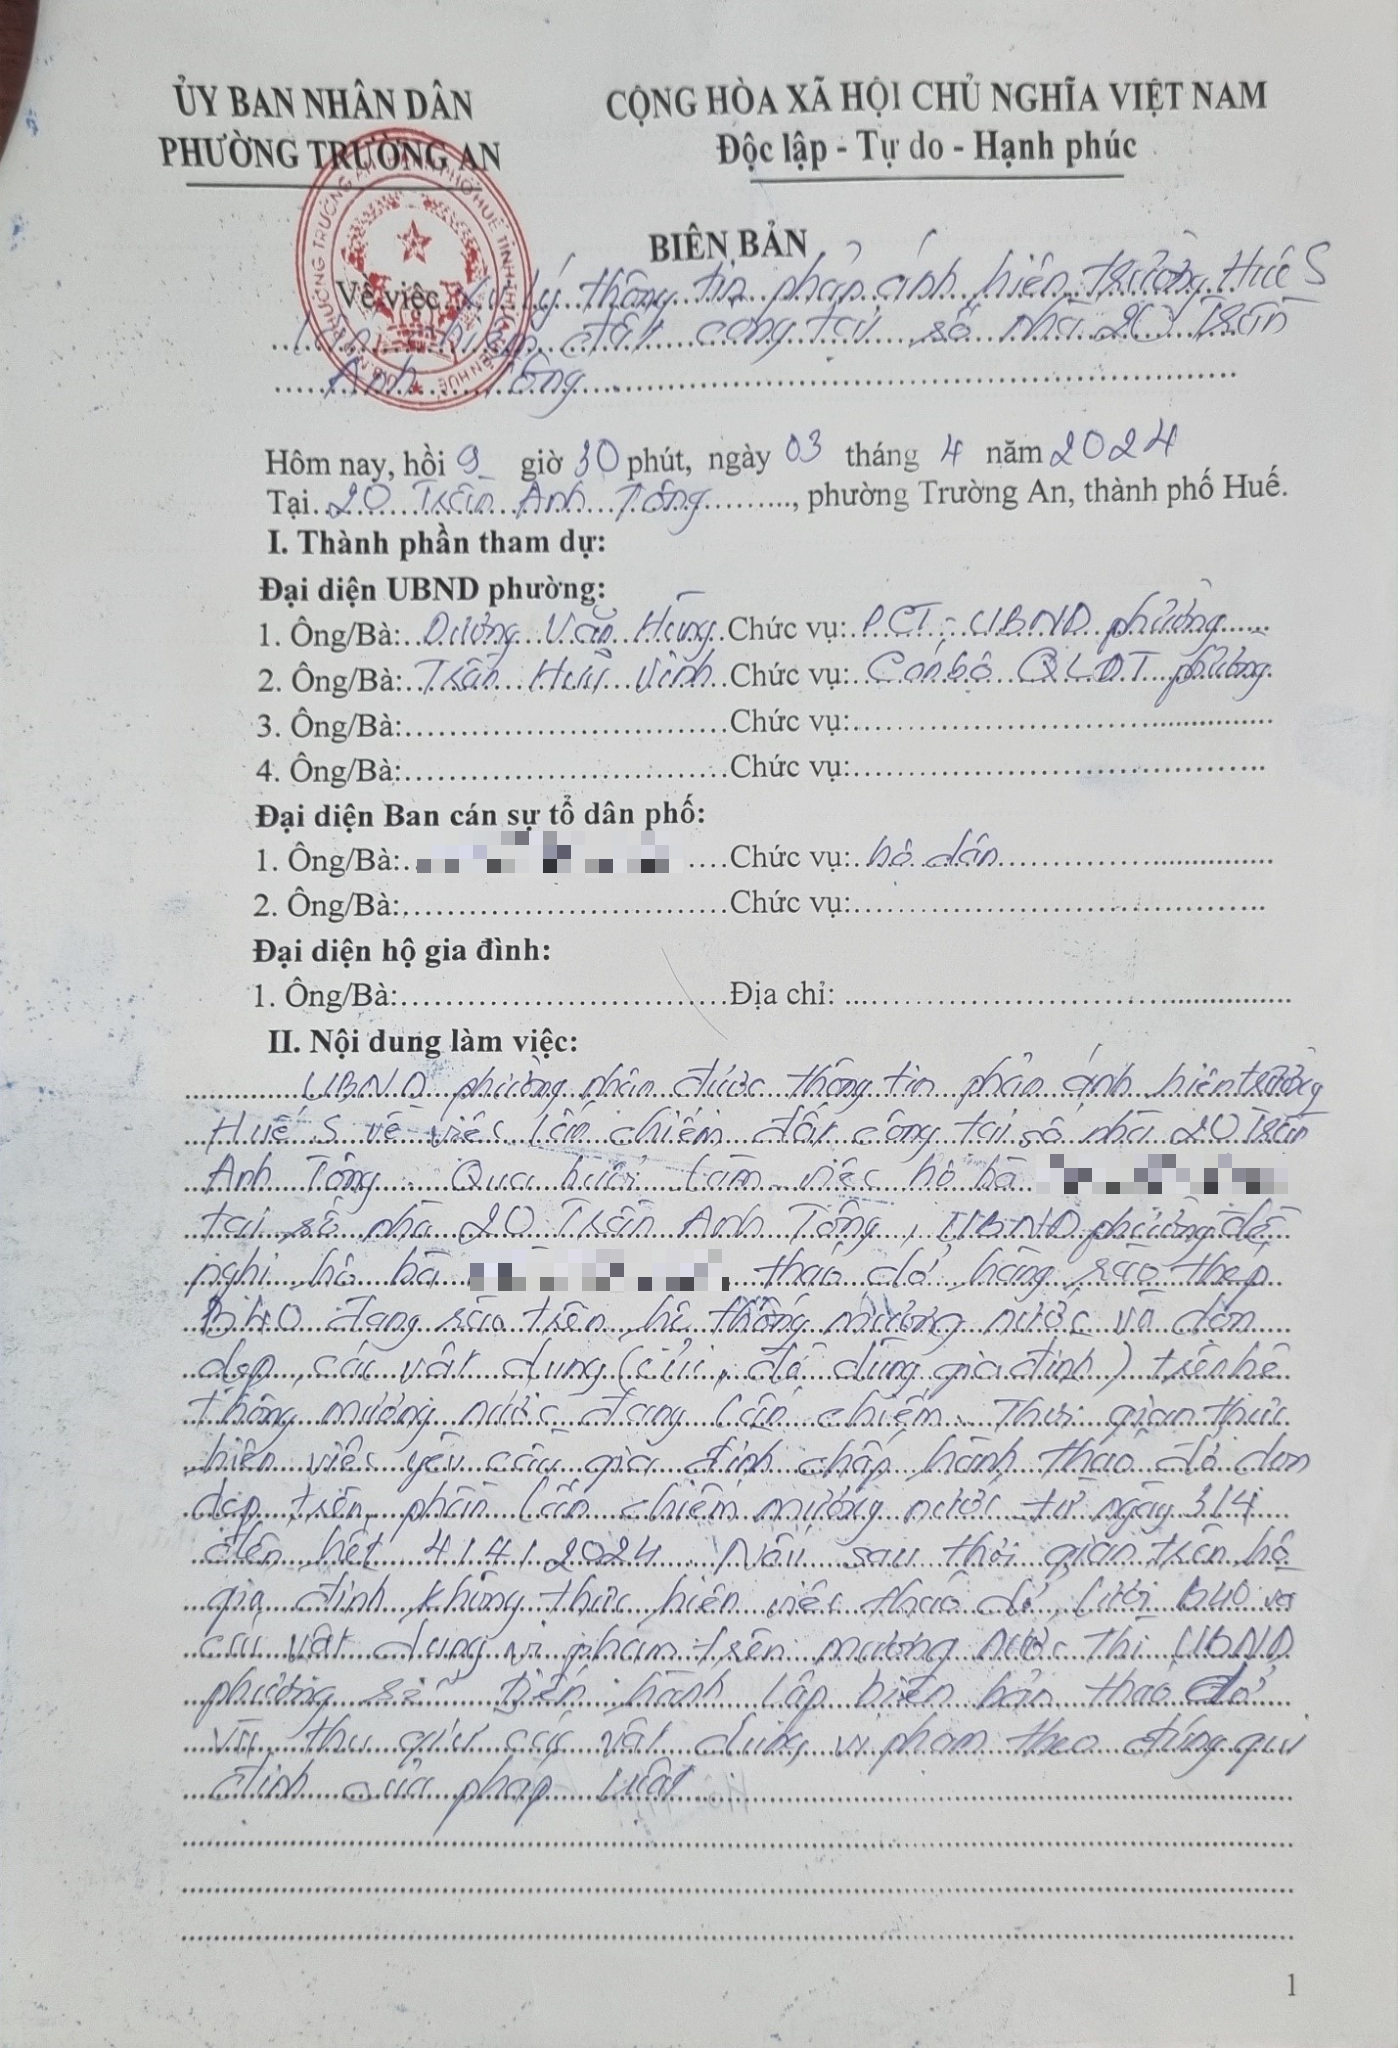 ỦY BAN NHÂN DÂN
PHƯỜNG TRƯỜNG AN
CỘNG HÒA XÃ HỘI CHỦ NGHĨA VIỆT NAM
Độc lập - Tự do - Hạnh phúc
BIÊN BẢN
Về việc xử lý thông tin phản ánh hiện trường Huế S
lấn chiếm đất công tại số nhà 20 Trần
Anh Tông
Hôm nay, hồi 9 giờ 30 phút, ngày 03 tháng 4 năm 2024
Tại 20 Trần Anh Tông, phường Trường An, thành phố Huế.
I. Thành phần tham dự:
Đại diện UBND phường:
1. Ông/Bà: Dương Văn Hùng Chức vụ: PCT - UBND phường
2. Ông/Bà: Trần Hữu Vinh Chức vụ: Cán bộ QLĐT phường
3. Ông/Bà: Chức vụ:
4. Ông/Bà: Chức vụ:
Đại diện Ban cán sự tổ dân phố:
1. Ông/Bà: Chức vụ: hộ dân
2. Ông/Bà: Chức vụ:
Đại diện hộ gia đình:
1. Ông/Bà: Địa chỉ:
II. Nội dung làm việc:
UBND phường nhận được thông tin phản ánh hiện trường
Huế S về việc lấn chiếm đất công tại số nhà 20 Trần
Anh Tông. Qua buổi làm việc hộ bà
tại số nhà 20 Trần Anh Tông, UBND phường đề
nghị hộ bà tháo dỡ hàng rào thép
B40 đang rào trên hệ thống mương nước và dọn
dẹp các vật dụng (củi, đồ dùng gia đình) trên hệ
thống mương nước đang lấn chiếm. Thời gian thực
hiện việc yêu cầu gia đình chấp hành tháo dỡ dọn
dẹp trên phần lấn chiếm mương nước từ ngày 3/4
đến hết 4/4/2024. Nếu sau thời gian trên hộ
gia đình không thực hiện việc tháo dỡ lưới B40 và
các vật dụng vi phạm trên mương nước thì UBND
phường sẽ tiến hành lập biên bản tháo dỡ
và thu giữ các vật dụng vi phạm theo đúng qui
định của pháp luật
1